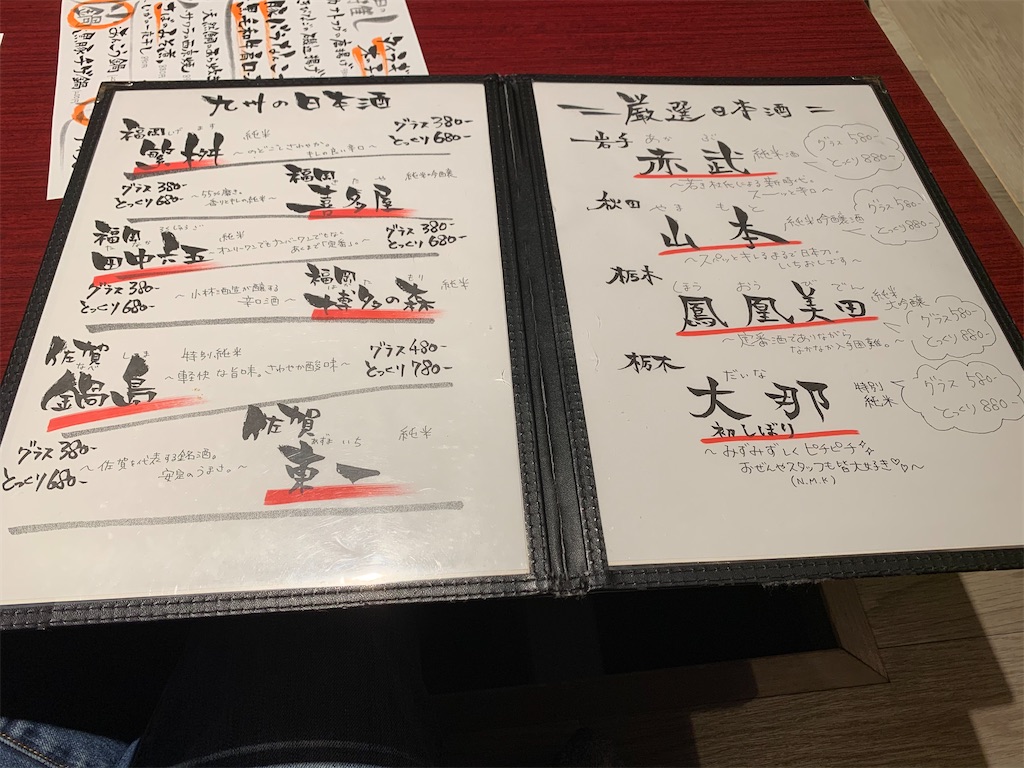 九州の日本酒
福岡 しげます 純米
繁桝
～のどごしさわやか。
キレの良い辛口～
グラス 380-
とっくり 680-
福岡 きたや 純米吟醸
喜多屋
～55%磨き。
香りとキレの純米～
グラス 380-
とっくり 680-
福岡 純米
田中六五
～オンリーワンでもナンバーワンでもない
あくまで「定番」。～
グラス 380-
とっくり 680-
福岡 はかた もり 純米
博多の森
～小林酒造が醸する
辛口酒～
グラス 380-
とっくり 680-
佐賀 なべしま 特別純米
鍋島
～軽快な旨味。さわやか酸味～
グラス 480-
とっくり 780-
佐賀 あずまいち 純米
東一
～佐賀を代表する銘酒。
安定のうまさ。～
グラス 380-
とっくり 680-
＝厳選日本酒＝
岩手 あかぶ
赤武 純米酒
～若き杜氏による新時代。
スーッと辛口～
グラス 580-
とっくり 880-
秋田 やまもと
山本 純米吟醸酒
～スパッとキレるまるで日本刀。
いちおしです～
グラス 580-
とっくり 880-
栃木 ほうおうびでん
鳳凰美田 純米大吟醸
～定番酒でありながら
なかなか入手困難。～
グラス 580-
とっくり 880-
栃木 だいな
大那 特別純米
初しぼり
～みずみずしくピチピチ
おぜんやスタッフも皆大好き♡♡～
(N.M.K)
グラス 580-
とっくり 880-